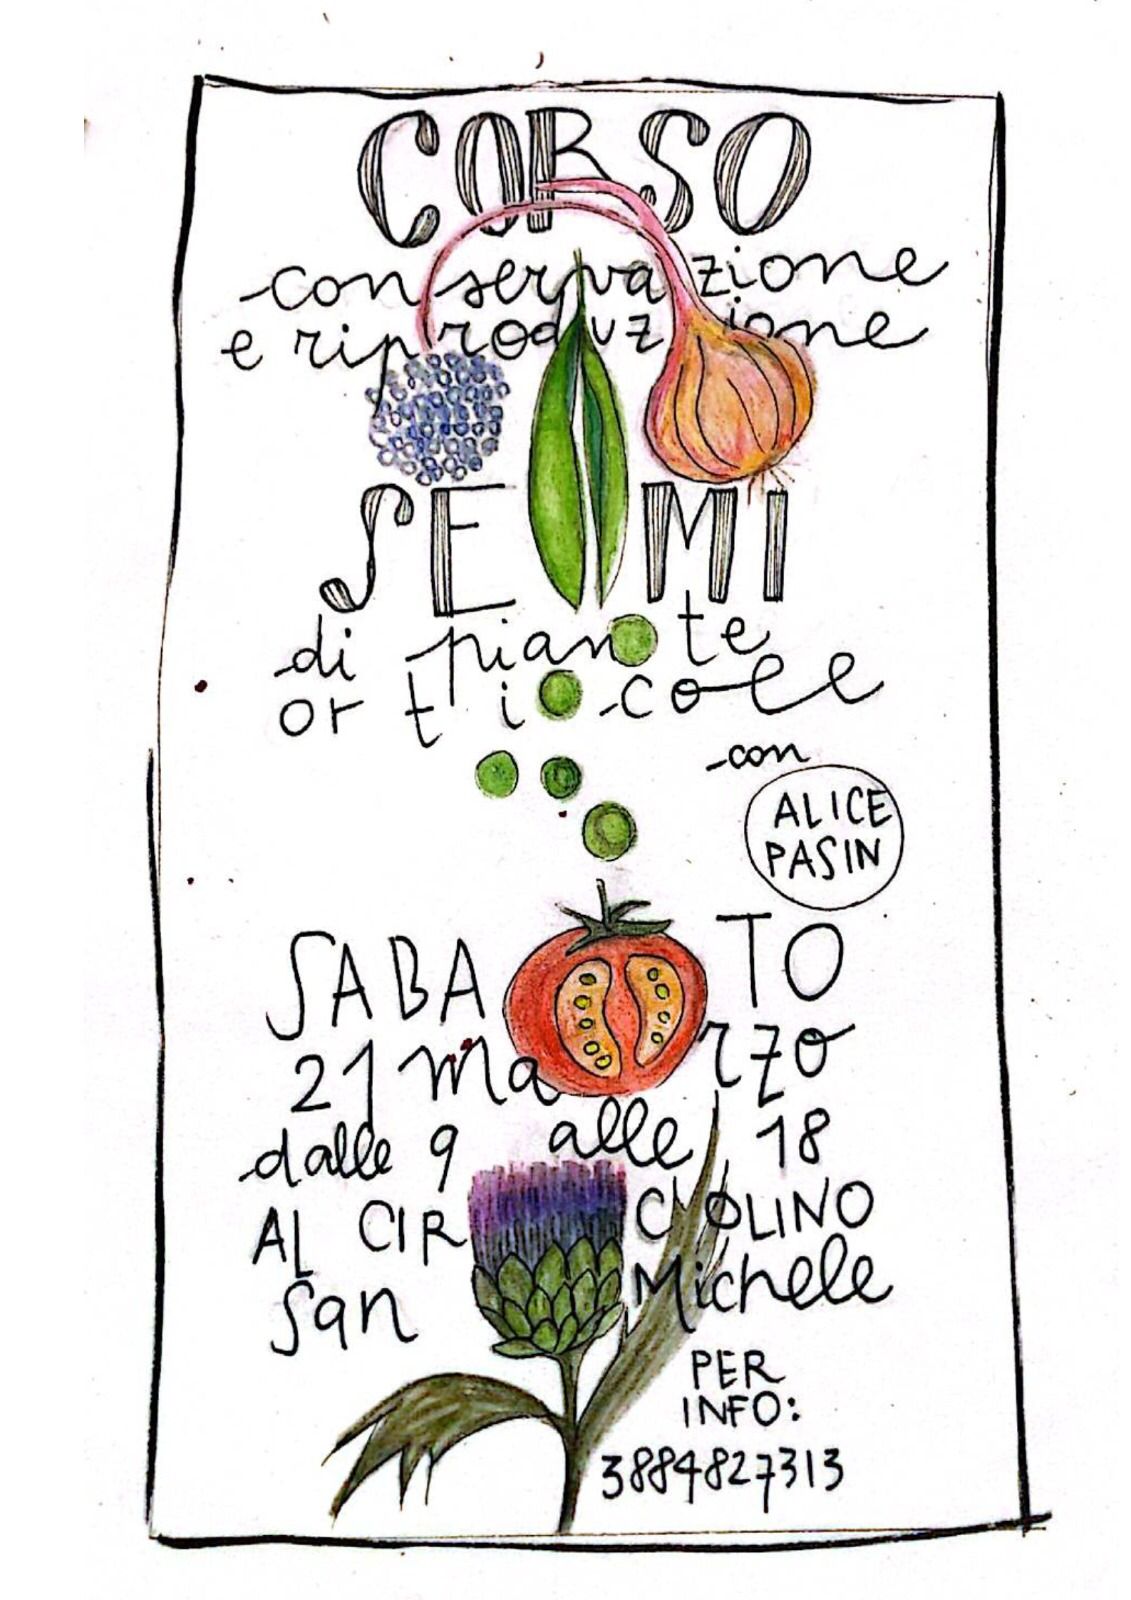 CORSO
conservazione
e riproduzione
SEMI
di piante
orticole
con
ALICE
PASIN
SABATO
21 marzo
dalle 9 alle 18
AL CIRCIOLINO
San Michele
PER
INFO:
3884827313